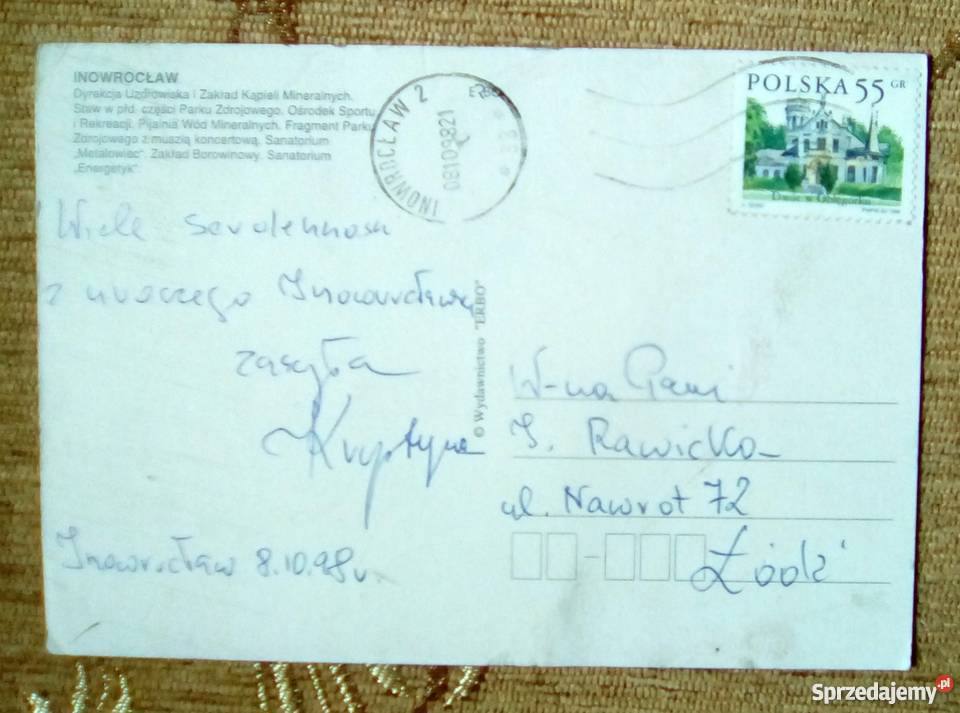 INOWROCŁAW
Dyrekcja Uzdrowiska i Zakład Kąpieli Mineralnych.
Staw w płd. części Parku Zdrojowego. Ośrodek Sportu
i Rekreacji. Pijalnia Wód Mineralnych. Fragment Parku
Zdrojowego z muszlą koncertową. Sanatorium
„Metalowiec". Zakład Borowinowy. Sanatorium
„Energetyk".
INOWROCŁAW 2
POLSKA 55 GR
Wiele serdeczności
z uroczego Inowrocławia
zasyła
Krystyna
Inowrocław 8.10.98r.
© Wydawnictwo "ERBO"
W-na Pani
J. Rawicka
ul. Nawrot 72
Łódź
Sprzedajemy.pl